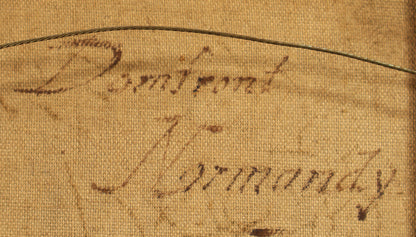 Domfront
Normandy